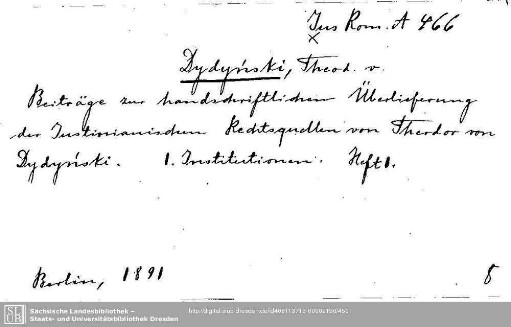 Jus Rom. A 466
x
Dydyński, Theod. v.
Beiträge zur handschriftlichen Überlieferung
der Justinianischen Rechtsquellen von Theodor von
Dydyński. 1. Institutionen. Heft 1.
Berlin, 1891
8
Sächsische Landesbibliothek –
Staats- und Universitätsbibliothek Dresden